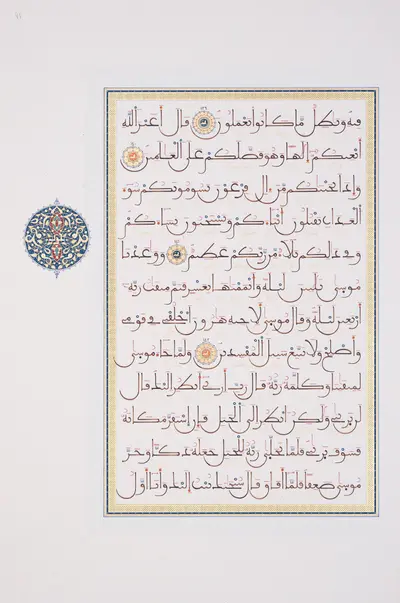 فيه وبطل ما كانوا يعملون قال أغير الله
أبغيكم إلها وهو فضلكم على العالمين
وإذ أنجينكم من آل فرعون يسومونكم سوء
العذاب يقتلون أبناءكم ويستحيون نساءكم
وفي ذلكم بلاء من ربكم عظيم ووعدنا
موسى ثلثين ليلة وأتممنها بعشر فتم ميقت ربه
أربعين ليلة وقال موسى لأخيه هرون اخلفني في قومي
وأصلح ولا تتبع سبيل المفسدين ولما جاء موسى
لميقتنا وكلمه ربه قال رب أرني أنظر إليك قال
لن تريني ولكن انظر إلى الجبل فإن استقر مكانه
فسوف تريني فلما تجلى ربه للجبل جعله دكا وخر
موسى صعقا فلما أفاق قال سبحنك تبت إليك وأنا أول